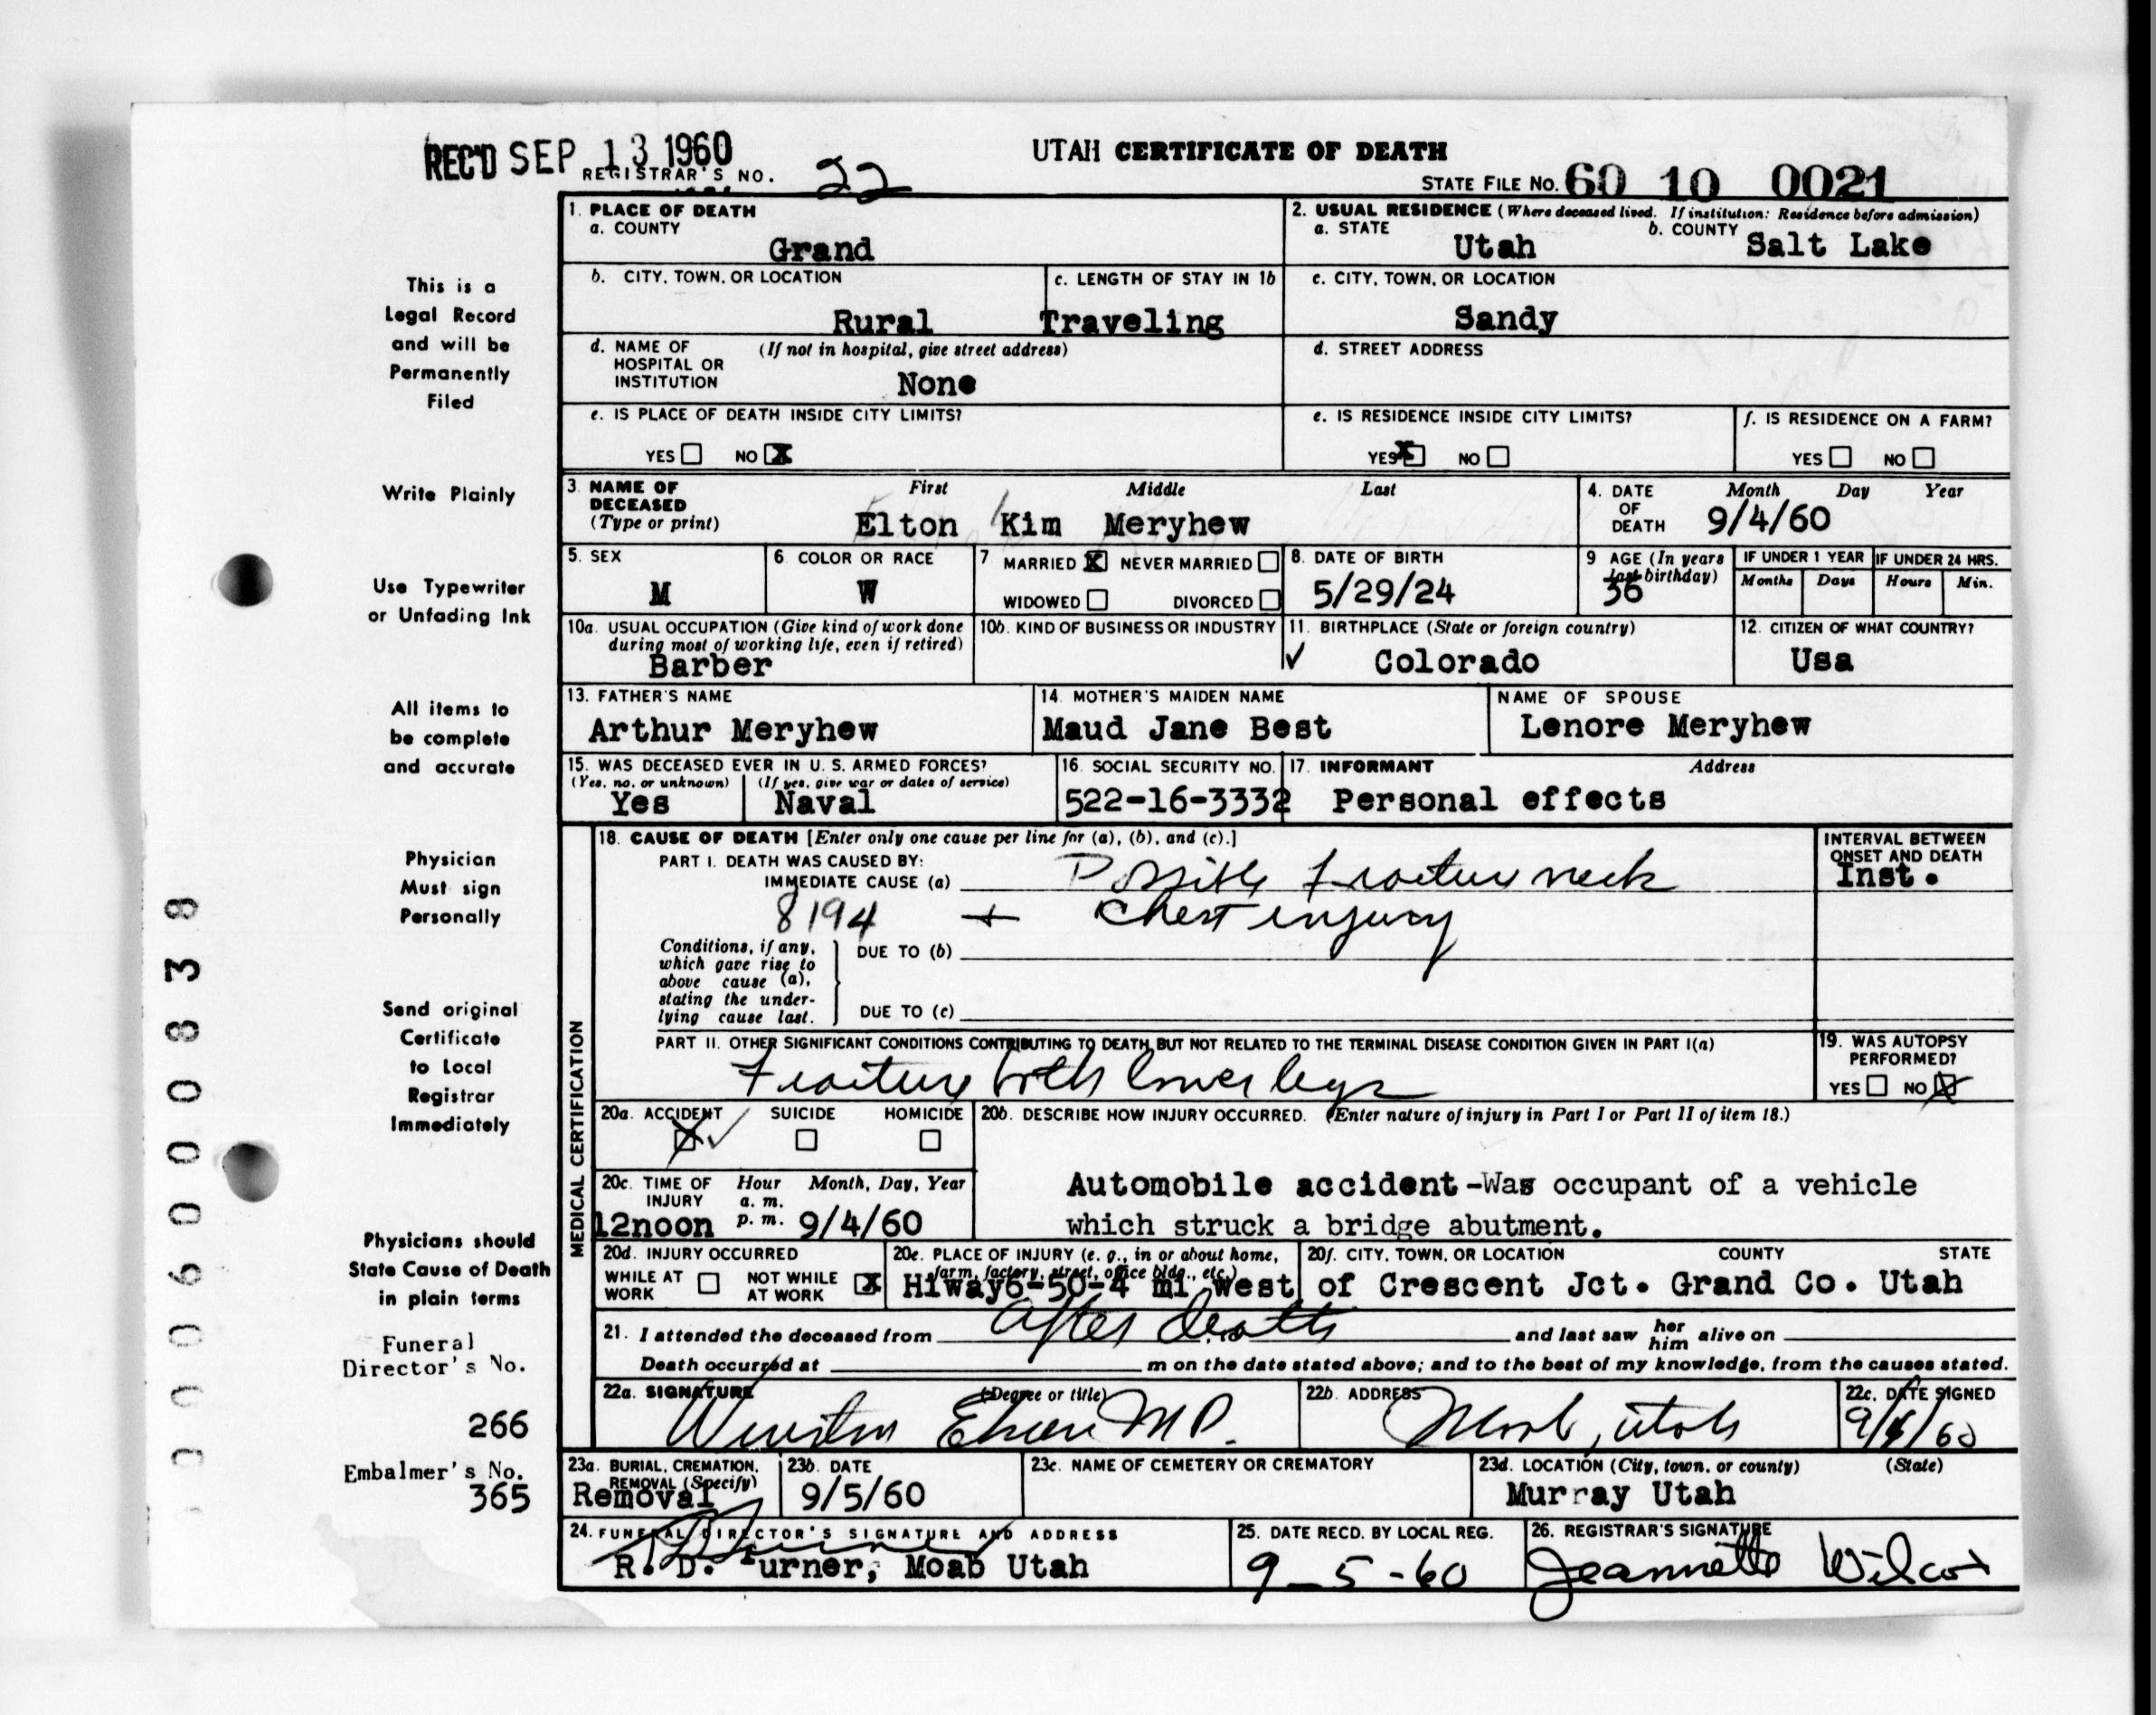 REC'D SEP 13 1960
REGISTRAR'S NO. 22
UTAH CERTIFICATE OF DEATH
STATE FILE NO. 60 10 0021
This is a
Legal Record
and will be
Permanently
Filed
Write Plainly
Use Typewriter
or Unfading Ink
All items to
be complete
and accurate
Physician
Must sign
Personally
Send original
Certificate
to Local
Registrar
Immediately
Physicians should
State Cause of Death
in plain terms
Funeral
Director's No.
266
Embalmer's No.
365
00060000838
1. PLACE OF DEATH
a. COUNTY
Grand
2. USUAL RESIDENCE (Where deceased lived. If institution: Residence before admission)
a. STATE Utah b. COUNTY Salt Lake
b. CITY, TOWN, OR LOCATION
Rural
c. LENGTH OF STAY IN 1b
Traveling
c. CITY, TOWN, OR LOCATION
Sandy
d. NAME OF HOSPITAL OR INSTITUTION (If not in hospital, give street address)
None
d. STREET ADDRESS
e. IS PLACE OF DEATH INSIDE CITY LIMITS?
YES NO X
e. IS RESIDENCE INSIDE CITY LIMITS?
YES X NO
f. IS RESIDENCE ON A FARM?
YES NO
3. NAME OF DECEASED (Type or print) First Middle Last
Elton Kim Meryhew
4. DATE OF DEATH Month Day Year
9/4/60
5. SEX
M
6. COLOR OR RACE
W
7 MARRIED X NEVER MARRIED
WIDOWED DIVORCED
8. DATE OF BIRTH
5/29/24
9 AGE (In years last birthday)
36
IF UNDER 1 YEAR IF UNDER 24 HRS.
Months Days Hours Min.
10a. USUAL OCCUPATION (Give kind of work done during most of working life, even if retired)
Barber
10b. KIND OF BUSINESS OR INDUSTRY
11. BIRTHPLACE (State or foreign country)
✓ Colorado
12. CITIZEN OF WHAT COUNTRY?
Usa
13. FATHER'S NAME
Arthur Meryhew
14. MOTHER'S MAIDEN NAME
Maud Jane Best
NAME OF SPOUSE
Lenore Meryhew
15. WAS DECEASED EVER IN U. S. ARMED FORCES?
(Yes, no, or unknown) (If yes, give war or dates of service)
Yes Naval
16. SOCIAL SECURITY NO.
522-16-3332
17. INFORMANT Address
Personal effects
MEDICAL CERTIFICATION
18. CAUSE OF DEATH [Enter only one cause per line for (a), (b), and (c).]
PART I. DEATH WAS CAUSED BY:
IMMEDIATE CAUSE (a) Possible fracture neck
8194 + Chest injury
INTERVAL BETWEEN ONSET AND DEATH
Inst.
Conditions, if any, which gave rise to above cause (a), stating the underlying cause last.
DUE TO (b)
DUE TO (c)
PART II. OTHER SIGNIFICANT CONDITIONS CONTRIBUTING TO DEATH BUT NOT RELATED TO THE TERMINAL DISEASE CONDITION GIVEN IN PART I(a)
Fracture both lower legs
19. WAS AUTOPSY PERFORMED?
YES NO X
20a. ACCIDENT SUICIDE HOMICIDE
X ✓
20b. DESCRIBE HOW INJURY OCCURRED. (Enter nature of injury in Part I or Part II of item 18.)
Automobile accident-Was occupant of a vehicle
which struck a bridge abutment.
20c. TIME OF INJURY Hour Month, Day, Year
a. m.
p. m.
12noon 9/4/60
20d. INJURY OCCURRED
WHILE AT WORK NOT WHILE AT WORK X
20e. PLACE OF INJURY (e. g., in or about home, farm, factory, street, office bldg., etc.)
20f. CITY, TOWN, OR LOCATION COUNTY STATE
Hiway6-50-4 mi west of Crescent Jct. Grand Co. Utah
21. I attended the deceased from after death and last saw her him alive on
Death occurred at m on the date stated above; and to the best of my knowledge, from the causes stated.
22a. SIGNATURE (Degree or title)
M.D.
22b. ADDRESS
Moab, Utah
22c. DATE SIGNED
23a. BURIAL, CREMATION, REMOVAL (Specify)
Removal
23b. DATE
9/5/60
23c. NAME OF CEMETERY OR CREMATORY
23d. LOCATION (City, town, or county) (State)
Murray Utah
24. FUNERAL DIRECTOR'S SIGNATURE AND ADDRESS
R. D. Turner, Moab Utah
25. DATE RECD. BY LOCAL REG.
9-5-60
26. REGISTRAR'S SIGNATURE
Jeannette Wilcox